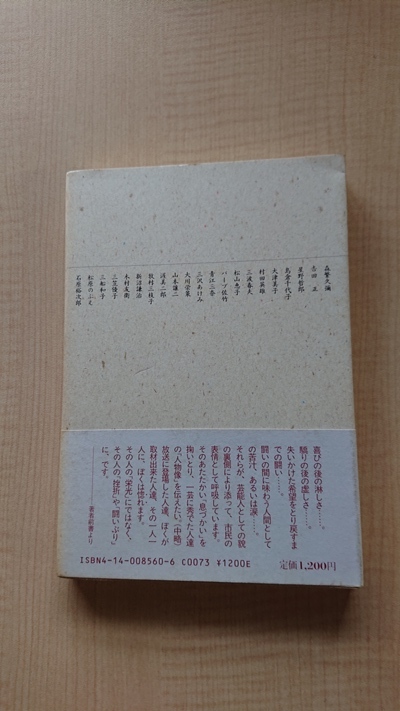 森繁久彌
吉田正
星野哲郎
島倉千代子
大津美子
村田英雄
三波春夫
松山恵子
バーブ佐竹
青江三奈
三沢あけみ
大川栄策
山本譲二
渥美二郎
牧村三枝子
新沼謙治
木村友衛
三笠優子
三船和子
松原のぶえ
石原裕次郎
喜びの後の淋しさ……。
驕りの後の虚しさ……。
失いかけた希望をとり戻すま
での闘い……。
闘いの間に味わう人間として
の苦汁、あるいは涙……。
それらが、芸能人としての貌
の裏側により添って、市民の
表情として呼吸しています。
そのあたたかい「息づかい」を
掬いとり、一芸に秀でた人達
の〝人物像〟を伝えたい。(中略)
放送に登場した人達、ぼくが
取材出来た人達、その一人一
人に、ぼくは惚れます。
その人の「栄光」にではなく、
その人の「挫折」や「闘いぶり」
に、です。
ISBN4-14-008560-6 C0073 ¥1200E
定価1,200円